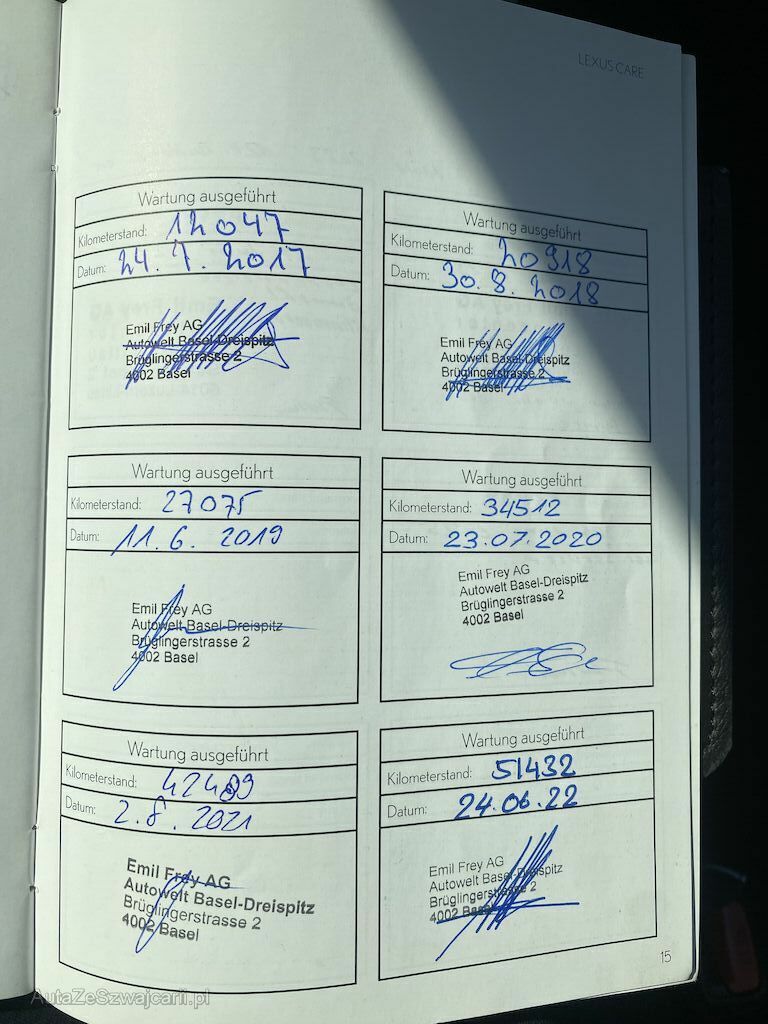 LEXUS CARE
Wartung ausgeführt
Kilometerstand: 12047
Datum: 24.7.2017
Emil Frey AG
Autowelt Basel-Dreispitz
Brüglingerstrasse 2
4002 Basel
Wartung ausgeführt
Kilometerstand: 20918
Datum: 30.8.2018
Emil Frey AG
Autowelt Basel-Dreispitz
Brüglingerstrasse 2
4002 Basel
Wartung ausgeführt
Kilometerstand: 27075
Datum: 11.6.2019
Emil Frey AG
Autowelt Basel-Dreispitz
Brüglingerstrasse 2
4002 Basel
Wartung ausgeführt
Kilometerstand: 34512
Datum: 23.07.2020
Emil Frey AG
Autowelt Basel-Dreispitz
Brüglingerstrasse 2
4002 Basel
Wartung ausgeführt
Kilometerstand: 42489
Datum: 2.8.2021
Emil Frey AG
Autowelt Basel-Dreispitz
Brüglingerstrasse 2
4002 Basel
Wartung ausgeführt
Kilometerstand: 51432
Datum: 24.06.22
Emil Frey AG
Autowelt Basel-Dreispitz
Brüglingerstrasse 2
4002 Basel
15
AutaZeSzwajcarii.pl